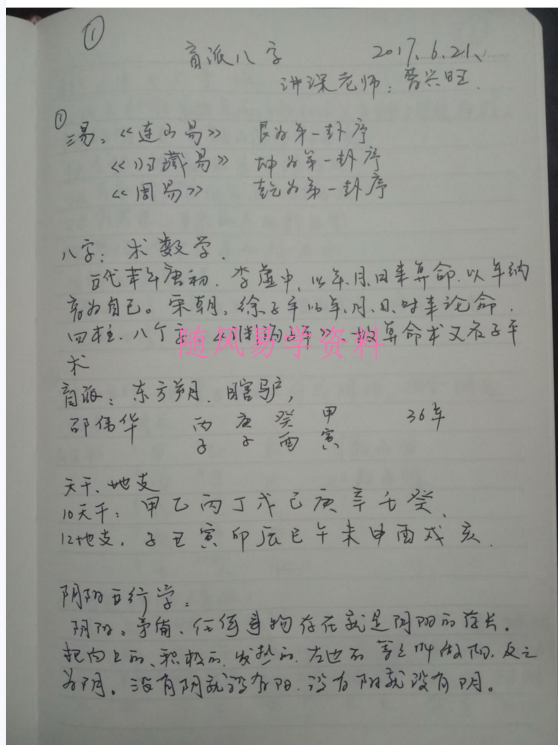 ①
盲派八字 2017.6.21、
讲课老师：晋兴旺
① 三易：《连山易》 艮为第一卦序
《归藏易》 坤为第一卦序
《周易》 乾为第一卦序
八字：术数学．
古代 唐初．李虚中．以年．月．日来算命．以年纳
音为自己。宋朝．徐子平以年．月．日．时来论命．
四柱．八个字．《渊海子平》、故算命术又名子平
随风易学资料
术
盲派：东方朔．瞎驴，
邵伟华 丙 庚 癸 甲 36年
子 子 酉 寅
天干、地支
10天干：甲乙丙丁戊己庚辛壬癸．
12地支．子丑寅卯辰巳午未申酉戌亥．
阴阳五行学：
阴阳。矛盾．任何事物存在就是阴阳的存 ．
把向上的、积极的．发热的．左边的 等之叫做阳．反之
为阴。没有阴就没有阳．没有阳就没有阴。